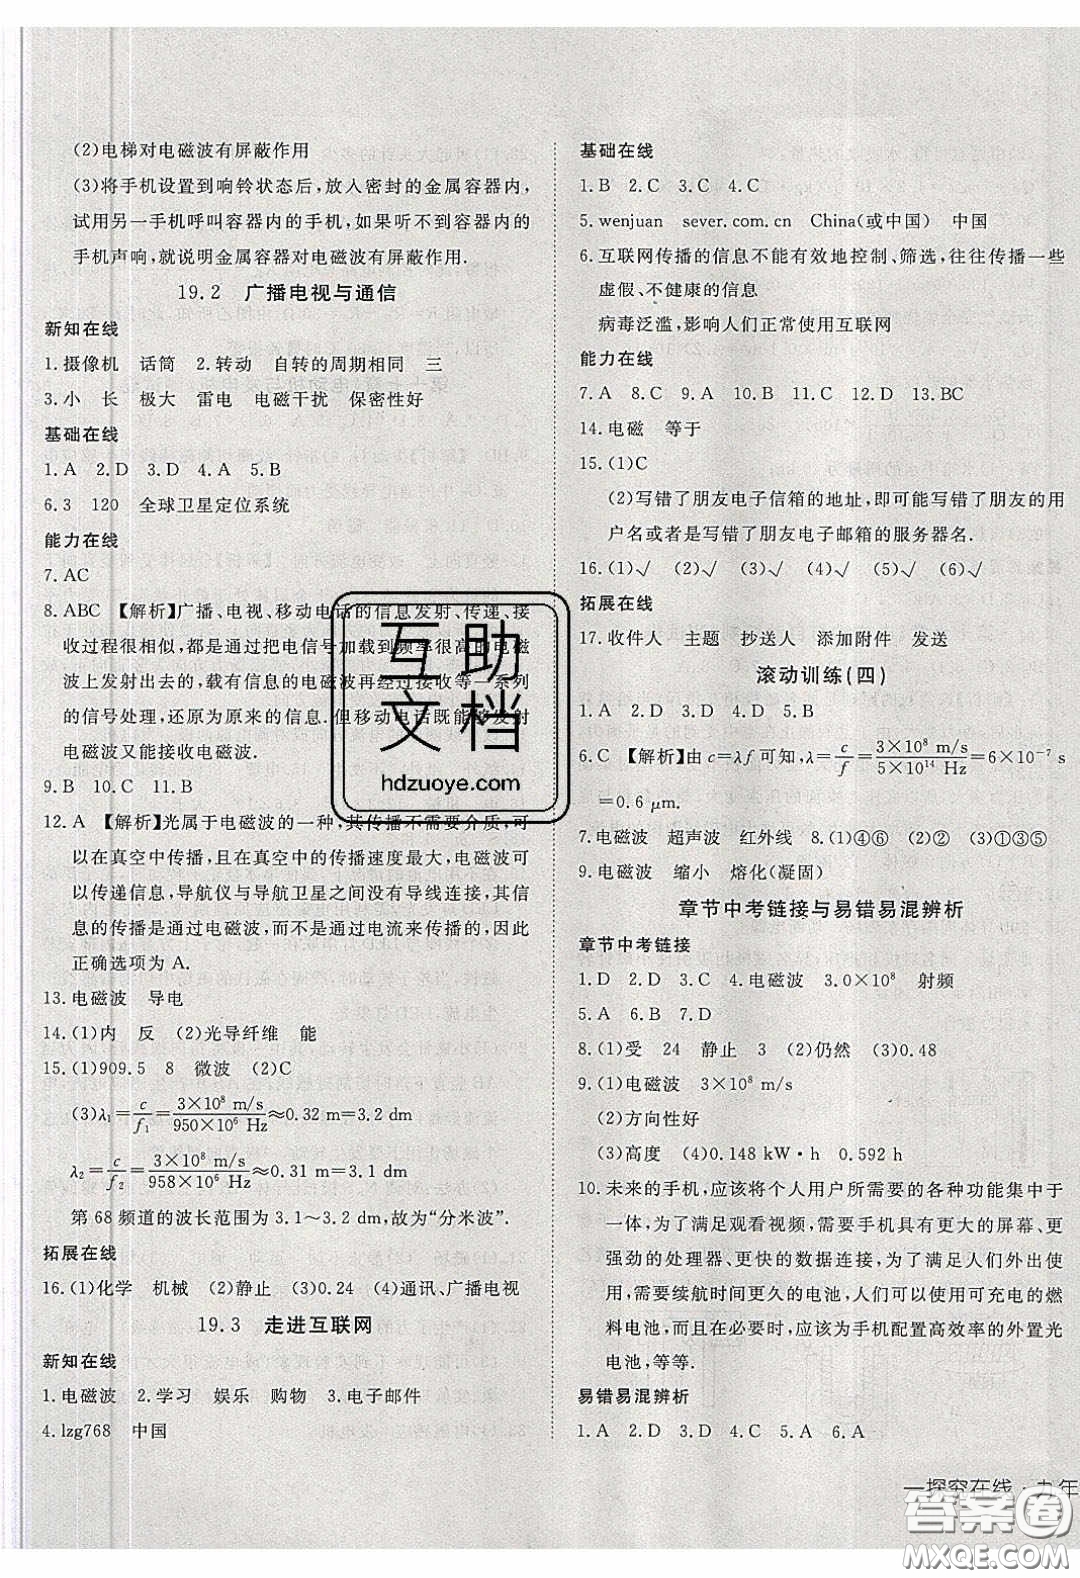 (2)电梯对电磁波有屏蔽作用
(3)将手机设置到响铃状态后,放入密封的金属容器内,
试用另一手机呼叫容器内的手机,如果听不到容器内的
手机声响,就说明金属容器对电磁波有屏蔽作用.
19.2 广播电视与通信
新知在线
1.摄像机 话筒 2.转动 自转的周期相同 三
3.小 长 极大 雷电 电磁干扰 保密性好
基础在线
1.A 2.D 3.D 4.A 5.B
6.3 120 全球卫星定位系统
能力在线
7.AC
8.ABC 【解析】广播、电视、移动电话的信息发射、传递、接
收过程很相似,都是通过把电信号加载到频率很高的电磁
波上发射出去的,载有信息的电磁波再经过接收等一系列
的信号处理,还原为原来的信息.但移动电话既能够发射
电磁波又能接收电磁波.
9.B 10.C 11.B
12.A 【解析】光属于电磁波的一种,其传播不需要介质,可
以在真空中传播,且在真空中的传播速度最大,电磁波可
以传递信息,导航仪与导航卫星之间没有导线连接,其信
息的传播是通过电磁波,而不是通过电流来传播的,因此
正确选项为 A.
13.电磁波 导电
14.(1)内 反 (2)光导纤维 能
15.(1)909.5 8 微波 (2)C
(3)λ₁=c/f₁=3×10⁸ m/s/950×10⁶ Hz≈0.32 m=3.2 dm
λ₂=c/f₂=3×10⁸ m/s/958×10⁶ Hz≈0.31 m=3.1 dm
第 68 频道的波长范围为 3.1～3.2 dm,故为“分米波”.
拓展在线
16.(1)化学 机械 (2)静止 (3)0.24 (4)通讯、广播电视
19.3 走进互联网
新知在线
1.电磁波 2.学习 娱乐 购物 3.电子邮件
4.lzg768 中国
基础在线
1.B 2.C 3.C 4.C
5.wenjuan sever.com.cn China(或中国) 中国
6.互联网传播的信息不能有效地控制、筛选,往往传播一些
虚假、不健康的信息
病毒泛滥,影响人们正常使用互联网
能力在线
7.A 8.C 9.A 10.B 11.C 12.D 13.BC
14.电磁 等于
15.(1)C
(2)写错了朋友电子信箱的地址,即可能写错了朋友的用
户名或者是写错了朋友电子邮箱的服务器名.
16.(1)√ (2)√ (3)√ (4)√ (5)√ (6)√
拓展在线
17.收件人 主题 抄送人 添加附件 发送
滚动训练(四)
1.A 2.D 3.D 4.D 5.B
6.C 【解析】由 c=λf 可知,λ=c/f=3×10⁸ m/s/5×10¹⁴ Hz=6×10⁻⁷ s
=0.6 μm.
7.电磁波 超声波 红外线 8.(1)④⑥ (2)② (3)①③⑤
9.电磁波 缩小 熔化(凝固)
章节中考链接与易错易混辨析
章节中考链接
1.D 2.D 3.C 4.电磁波 3.0×10⁸ 射频
5.A 6.B 7.D
8.(1)受 24 静止 3 (2)仍然 (3)0.48
9.(1)电磁波 3×10⁸
(2)方向性好
(3)高度 (4)0.148 kW·h 0.592 h
10.未来的手机,应该将个人用户所需要的各种功能集中于
一体,为了满足观看视频,需要手机具有更大的屏幕、更
强劲的处理器、更快的数据连接;为了满足人们外出使
用,需要续航时间更久的电池,所以应该使用可充电的燃
料电池,而且在必要时,应该为手机配置高效率的外置光
电池,等等.
易错易混辨析
1.A 2.D 3.D 4.A 5.A 6.A
一探究在线·九年
互助
文档
hdzuoye.com
答案圈
MXQE.COM